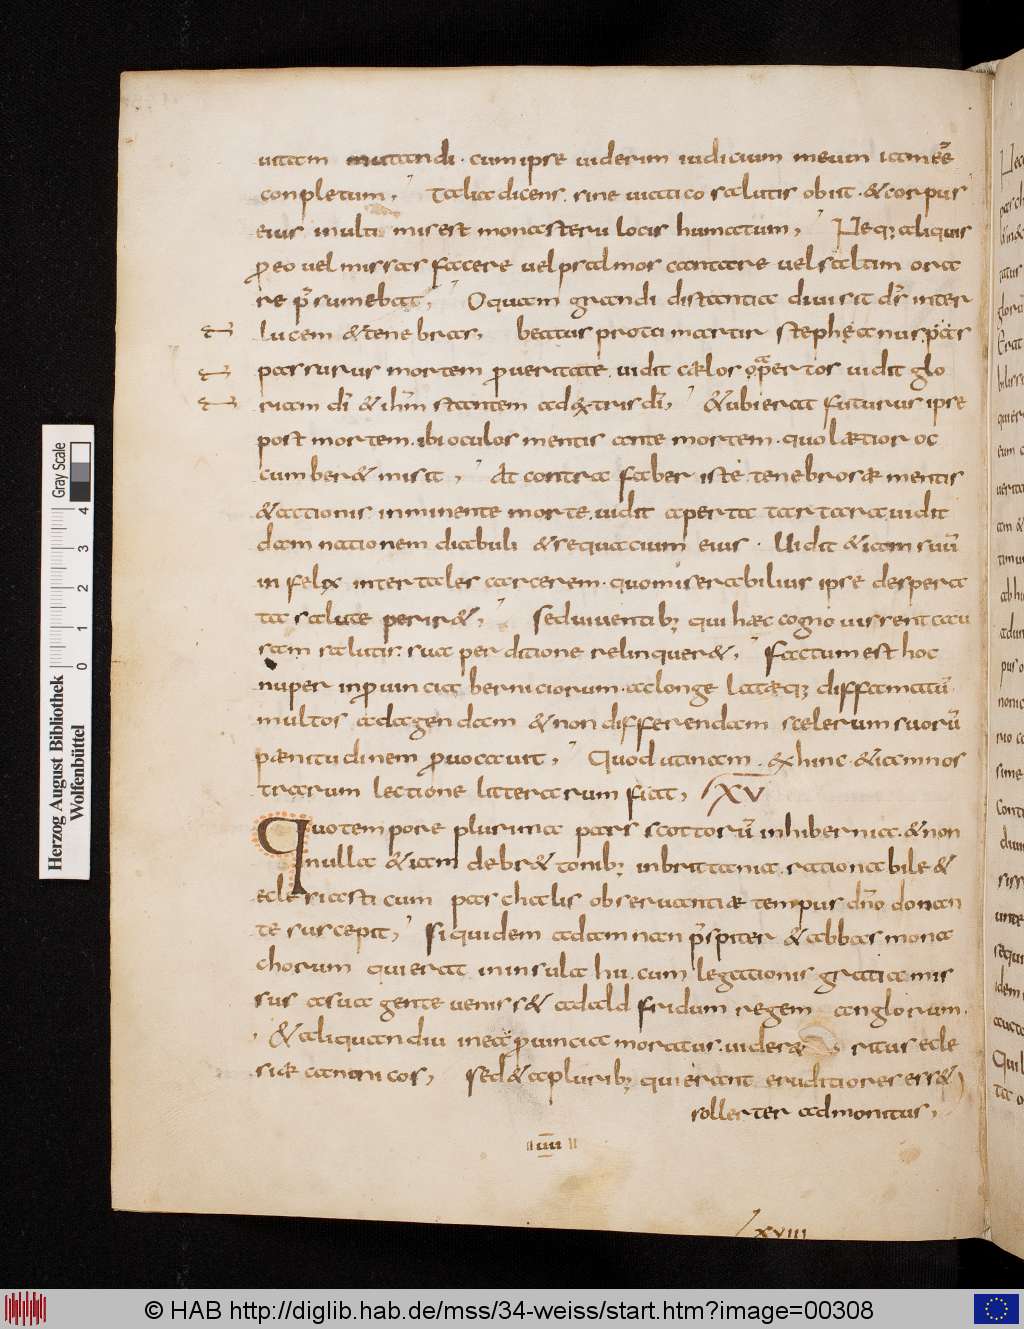 uitam mutandi · cum ipse uiderim iudicium meum iam eē
conpletum, Talia dicens. sine uiatico salutis obiit · & corpus
eius. in ultimis est monasterii locis humatum, Neq; aliquis
ꝓeo uel missas facere uel psalmos cantare uel saltim ora
re p̄sumebat, O quam grandi distantia diuisit d̄s inter
lucem & tenebras, beatus proto martir stephęanus. pas
passurus mortem ꝓueritate. uidit cælos opaertos uidit glo
riam dī & ih̄m stantem ad extris dī, & ubierat futurus ipse
post mortem. ibi oculos mentis ante mortem. quo lætior oc
cumber& misit, At contra faber iste tenebrosæ mentis
& actionis. inminente morte. uidit aperta tartara. uidit
damnationem diabuli & sequacium eius · Uidit & iam suū
in felix inter tales carcerem · quo miserabilius ipse despera
ta salute perir&, sed uiuentib; qui hæc cognouissent cau
sam salutis. sua perditione relinquer&, Factum est hoc
nuper in ꝓuincia berniciorum · ac longe latæq; diffamatū
multos ad agendam & non differendam scelerum suorū
pænitudinem ꝓuocauit, Quod utinam · exhinc · &iam nos
trarum lectione litterarum fiat, XV
Quo tempore plurima pars scottorū in hibernia · & non
nulla &iam de br&tonib; in brittania. rationabile &
eclesiasti cum paschalis obseruantiæ tempus dn̄o donan
te suscepit, Siquidem adamnan p̄spiter & abbas mona
chorum qui erat in insula hii. cum legationis gratia mis
sus a sua gente uenis s& ad aldfridum regem anglorum.
& aliquandiu in ea ꝓuincia moratus. uider& ritus ecle
siæ canonicos, sed & a plurib; qui erant eruditiores ess&
sollerter admonitus,
IIII
LXXIII
Herzog August Bibliothek
Wolfenbüttel
0 1 2 3 4
Gray Scale
© HAB http://diglib.hab.de/mss/34-weiss/start.htm?image=00308